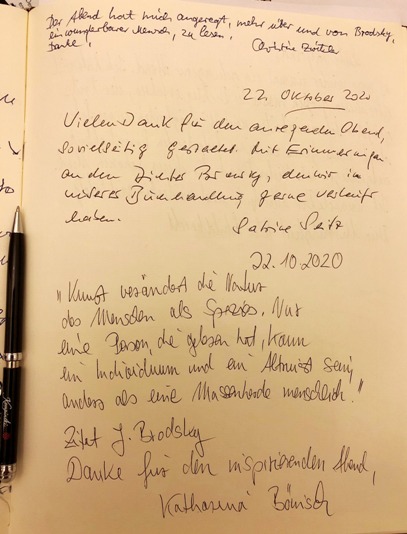 Der Abend hat mich angeregt, mehr über und von Brodsky,
ein wunderbarer Mensch, zu lesen.
Danke! Christine
22. Oktober 2020
Vielen Dank für den anregenden Abend,
so vielseitig gestaltet. Mit Erinnerungen
an den Dichter Brodsky, den wir in
unserer Buchhandlung gerne verkauft
haben.
Sabine Seitz
22.10.2020
"Kunst verändert die Natur
des Menschen als Spezies. Nur
eine Person, die gelesen hat, kann
ein Individuum und ein Altruist sein,
anders als eine Massenherde menschlich."
Zitat J. Brodsky
Danke für den inspirierenden Abend,
Katharina Bönisch